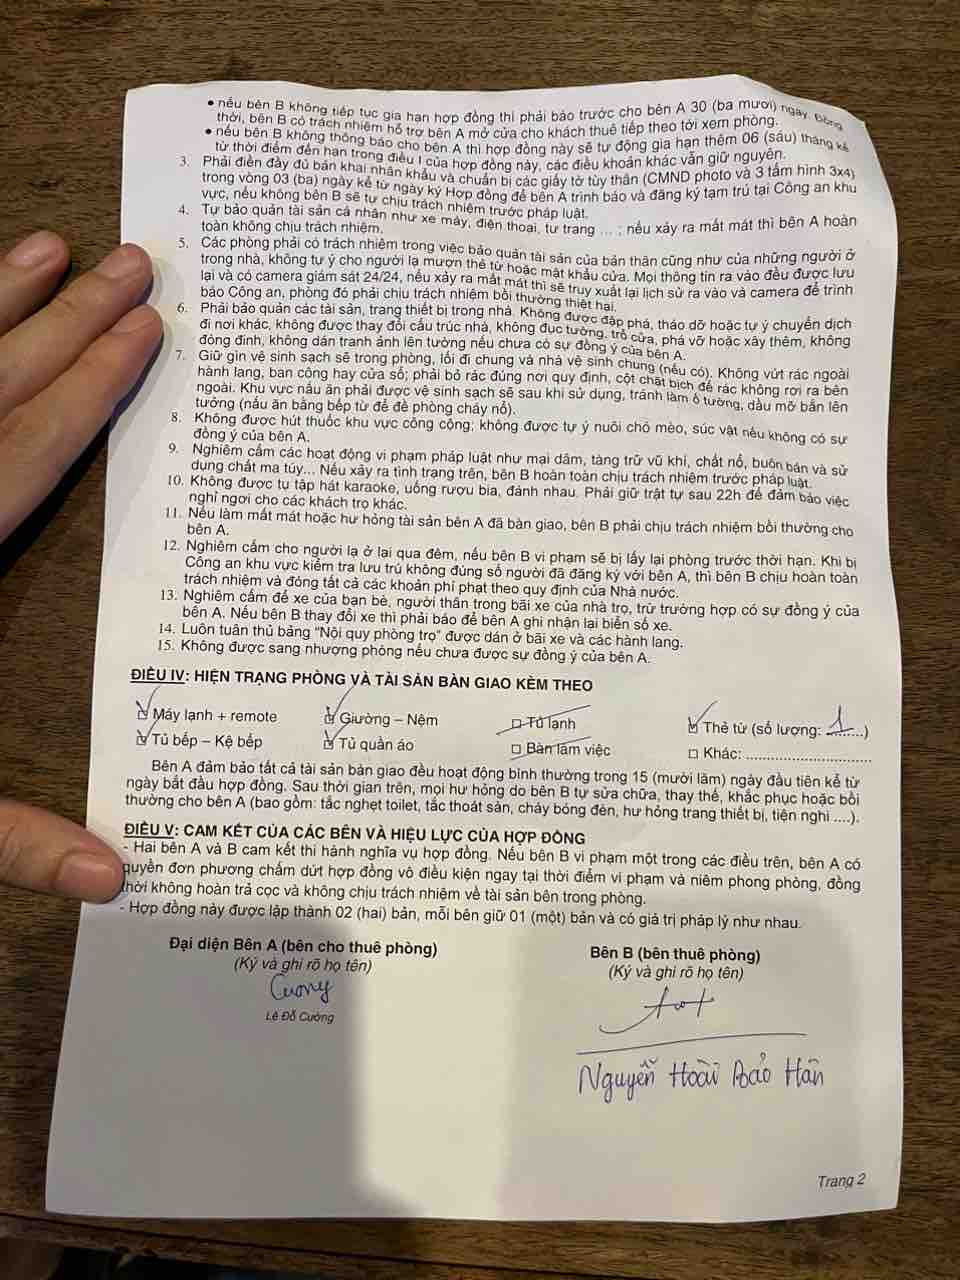 • nếu bên B không tiếp tục gia hạn hợp đồng thì phải báo trước cho bên A 30 (ba mươi) ngày. Đồng
thời, bên B có trách nhiệm hỗ trợ bên A mở cửa cho khách thuê tiếp theo tới xem phòng.
• nếu bên B không thông báo cho bên A thì hợp đồng này sẽ tự động gia hạn thêm 06 (sáu) tháng kể
từ thời điểm đến hạn trong điều I của hợp đồng này, các điều khoản khác vẫn giữ nguyên.
3. Phải điền đầy đủ bản khai nhân khẩu và chuẩn bị các giấy tờ tùy thân (CMND photo và 3 tấm hình 3x4)
trong vòng 03 (ba) ngày kể từ ngày ký Hợp đồng để bên A trình báo và đăng ký tạm trú tại Công an khu
vực, nếu không bên B sẽ tự chịu trách nhiệm trước pháp luật.
4. Tự bảo quản tài sản cá nhân như xe máy, điện thoại, tư trang ... ; nếu xảy ra mất mát thì bên A hoàn
toàn không chịu trách nhiệm.
5. Các phòng phải có trách nhiệm trong việc bảo quản tài sản của bản thân cũng như của những người ở
trong nhà, không tự ý cho người lạ mượn thẻ từ hoặc mật khẩu cửa. Mọi thông tin ra vào đều được lưu
lại và có camera giám sát 24/24, nếu xảy ra mất mát thì sẽ truy xuất lại lịch sử ra vào và camera để trình
báo Công an, phòng đó phải chịu trách nhiệm bồi thường thiệt hại.
6. Phải bảo quản các tài sản, trang thiết bị trong nhà. Không được đập phá, tháo dỡ hoặc tự ý chuyển dịch
đi nơi khác, không được thay đổi cấu trúc nhà, không đục tường, trổ cửa, phá vỡ hoặc xây thêm, không
đóng đinh, không dán tranh ảnh lên tường nếu chưa có sự đồng ý của bên A.
7. Giữ gìn vệ sinh sạch sẽ trong phòng, lối đi chung và nhà vệ sinh chung (nếu có). Không vứt rác ngoài
hành lang, ban công hay cửa sổ; phải bỏ rác đúng nơi quy định, cột chặt bịch để rác không rơi ra bên
ngoài. Khu vực nấu ăn phải được vệ sinh sạch sẽ sau khi sử dụng, tránh làm ố tường, dầu mỡ bắn lên
tường (nấu ăn bằng bếp từ để đề phòng cháy nổ).
8. Không được hút thuốc khu vực công cộng; không được tự ý nuôi chó mèo, súc vật nếu không có sự
đồng ý của bên A.
9. Nghiêm cấm các hoạt động vi phạm pháp luật như mại dâm, tàng trữ vũ khí, chất nổ, buôn bán và sử
dụng chất ma túy... Nếu xảy ra tình trạng trên, bên B hoàn toàn chịu trách nhiệm trước pháp luật.
10. Không được tụ tập hát karaoke, uống rượu bia, đánh nhau. Phải giữ trật tự sau 22h để đảm bảo việc
nghỉ ngơi cho các khách trọ khác.
11. Nếu làm mất mát hoặc hư hỏng tài sản bên A đã bàn giao, bên B phải chịu trách nhiệm bồi thường cho
bên A.
12. Nghiêm cấm cho người lạ ở lại qua đêm, nếu bên B vi phạm sẽ bị lấy lại phòng trước thời hạn. Khi bị
Công an khu vực kiểm tra lưu trú không đúng số người đã đăng ký với bên A, thì bên B chịu hoàn toàn
trách nhiệm và đóng tất cả các khoản phí phạt theo quy định của Nhà nước.
13. Nghiêm cấm để xe của bạn bè, người thân trong bãi xe của nhà trọ, trừ trường hợp có sự đồng ý của
bên A. Nếu bên B thay đổi xe thì phải báo để bên A ghi nhận lại biển số xe.
14. Luôn tuân thủ bảng "Nội quy phòng trọ" được dán ở bãi xe và các hành lang.
15. Không được sang nhượng phòng nếu chưa được sự đồng ý của bên A.
ĐIỀU IV: HIỆN TRẠNG PHÒNG VÀ TÀI SẢN BÀN GIAO KÈM THEO
☑ Máy lạnh + remote ☑ Giường – Nệm □ Tủ lạnh ☑ Thẻ từ (số lượng: ...1...)
☑ Tủ bếp – Kệ bếp ☑ Tủ quần áo □ Bàn làm việc □ Khác: ........................
Bên A đảm bảo tất cả tài sản bàn giao đều hoạt động bình thường trong 15 (mười lăm) ngày đầu tiên kể từ
ngày bắt đầu hợp đồng. Sau thời gian trên, mọi hư hỏng do bên B tự sửa chữa, thay thế, khắc phục hoặc bồi
thường cho bên A (bao gồm: tắc nghẹt toilet, tắc thoát sàn, cháy bóng đèn, hư hỏng trang thiết bị, tiện nghi ....).
ĐIỀU V: CAM KẾT CỦA CÁC BÊN VÀ HIỆU LỰC CỦA HỢP ĐỒNG
- Hai bên A và B cam kết thi hành nghĩa vụ hợp đồng. Nếu bên B vi phạm một trong các điều trên, bên A có
quyền đơn phương chấm dứt hợp đồng vô điều kiện ngay tại thời điểm vi phạm và niêm phong phòng, đồng
thời không hoàn trả cọc và không chịu trách nhiệm về tài sản bên trong phòng.
- Hợp đồng này được lập thành 02 (hai) bản, mỗi bên giữ 01 (một) bản và có giá trị pháp lý như nhau.
Đại diện Bên A (bên cho thuê phòng) Bên B (bên thuê phòng)
(Ký và ghi rõ họ tên) (Ký và ghi rõ họ tên)
Cuong
Lê Đỗ Cường
Nguyễn Hoài Bảo Hân
Trang 2